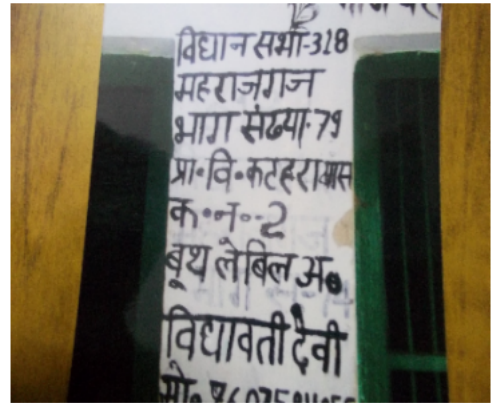 विधान सभा-318
महराजगज
भाग संख्या-79
प्रा॰वि॰कटहराखास
क॰न॰-2
बूथ लेबिल अ॰
विद्यावती देवी
मो॰